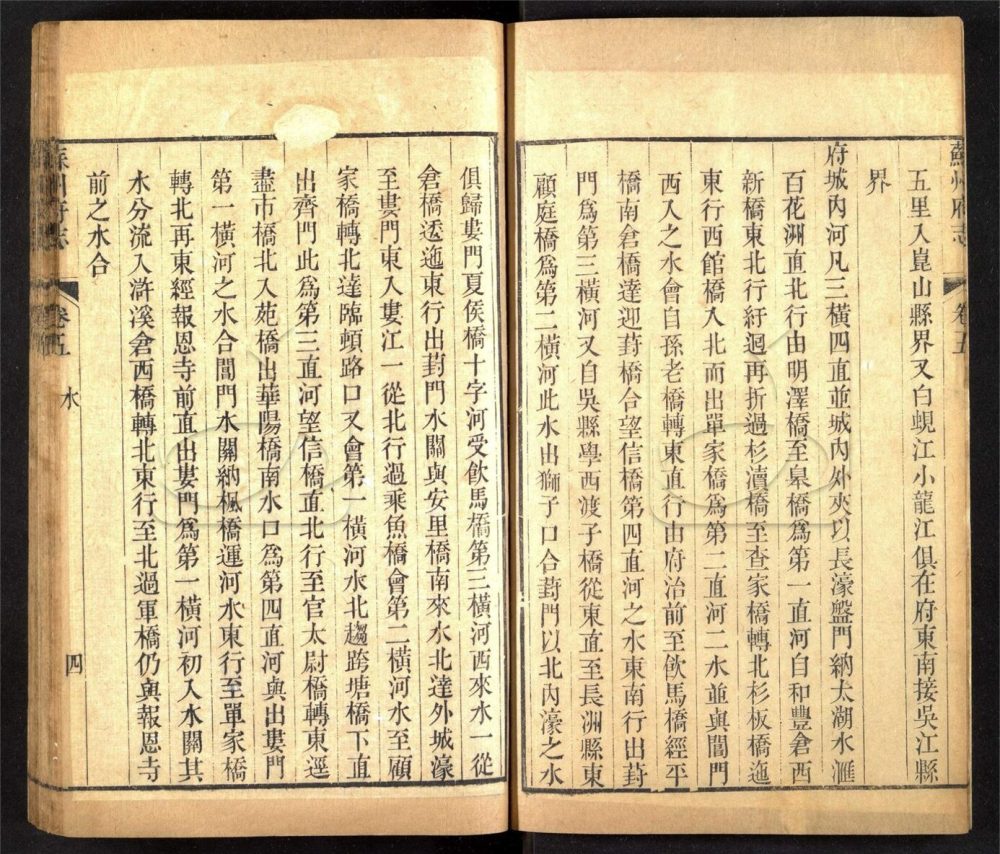 蘇州府志 卷五
五里入崑山縣界又白蜆江小龍江俱在府東南接吳江縣
界
府城內河凡三橫四直並城內外夾以長濠盤門納太湖水滙
百花洲直北行由明澤橋至皋橋爲第一直河自和豐倉西
新橋東北行紆迴再折過杉瀆橋至查家橋轉北杉板橋迤
東行西館橋入北而出單家橋爲第二直河二水並與閶門
西入之水會自孫老橋轉東直行由府治前至飲馬橋經平
橋南倉橋達迎葑橋合望信橋第四直河之水東南行出葑
門爲第三橫河又自吳縣學西渡子橋從東直至長洲縣東
顧庭橋爲第二橫河此水出獅子口合葑門以北內濠之水
俱歸婁門夏侯橋十字河受飲馬橋第三橫河西來水一從
倉橋迤迤東行出葑門水關與安里橋南來水北達外城濠
至婁門東入婁江一從北行過乘魚橋會第二橫河水至顧
家橋轉北達臨頓路口又會第一橫河水北趨跨塘橋下直
出齊門此爲第三直河望信橋直北行至官太尉橋轉東逕
盡市橋北入苑橋出華陽橋南水口爲第四直河與出婁門
第一橫河之水合閶門水關納楓橋運河水東行至單家橋
轉北再東經報恩寺前直出婁門爲第一橫河初入水關其
水分流入滸溪倉西橋轉北東行至北過軍橋仍與報恩寺
前之水合
蘇州府志 卷五 水 四